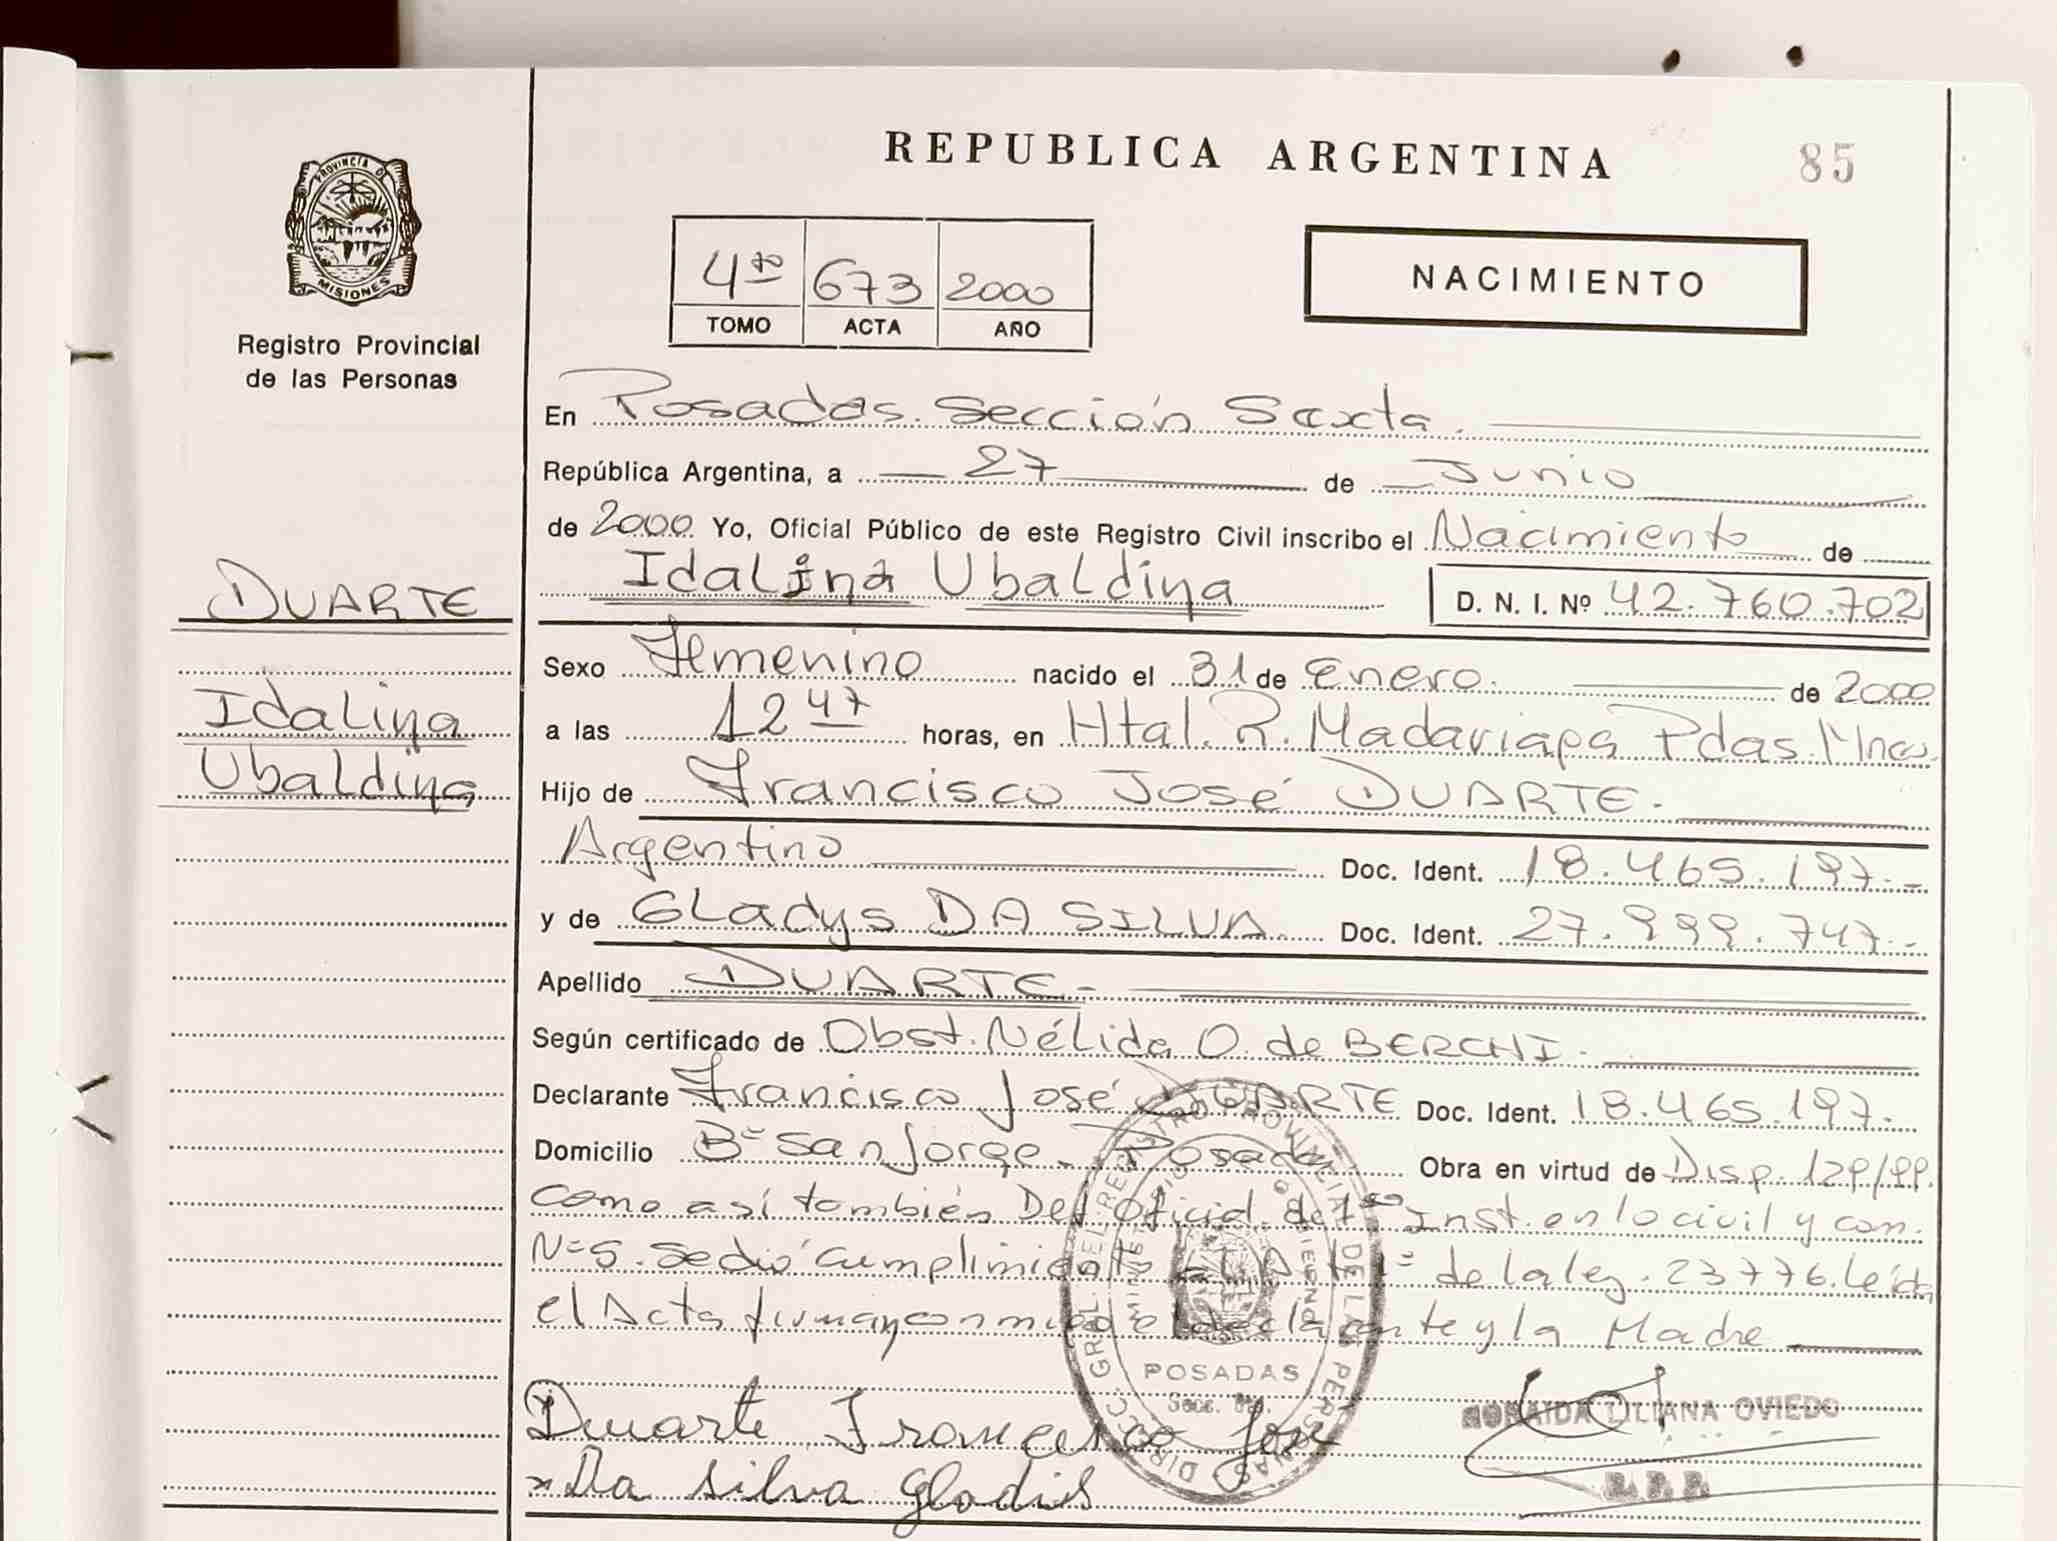 REPUBLICA ARGENTINA
85
PROVINCIA DE
MISIONES
Registro Provincial
de las Personas
4to 673 2000
TOMO ACTA AÑO
NACIMIENTO
En Posadas. Sección Sexta.
República Argentina, a 27 de Junio
de 2000 Yo, Oficial Público de este Registro Civil inscribo el Nacimiento de
Idalina Ubaldina D. N. I. Nº 42.760.702
DUARTE
Idalina
Ubaldina
Sexo Femenino nacido el 31 de Enero. de 2000
a las 12 47 horas, en Htal. R. Madariaga Pdas. Mnes.
Hijo de Francisco José DUARTE.
Argentino Doc. Ident. 18.465.197.-
y de GLadys DA SILVA. Doc. Ident. 27.999.747.-
Apellido DUARTE.-
Según certificado de Obst. Nélida O. de BERCHI.
Declarante Francisco José DUARTE Doc. Ident. 18.465.197.
Domicilio Bº San Jorge. Posadas Obra en virtud de Disp. 129/99.
como así también Def. Oficial de 1ra Inst. en lo civil y com.
Nº 5. Se dió cumplimiento Art 1º de la ley. 23776. Leída
el Acta firman conmigo el declarante y la Madre
DIRECC. GRAL. DEL REGISTRO PROVINCIAL DE LAS PERSONAS
MINISTERIO DE GOBIERNO
POSADAS
Secc. 6ta.
Duarte Francisco Jose
x Da Silva Gladis
LILIANA OVIEDO
R. P. P.